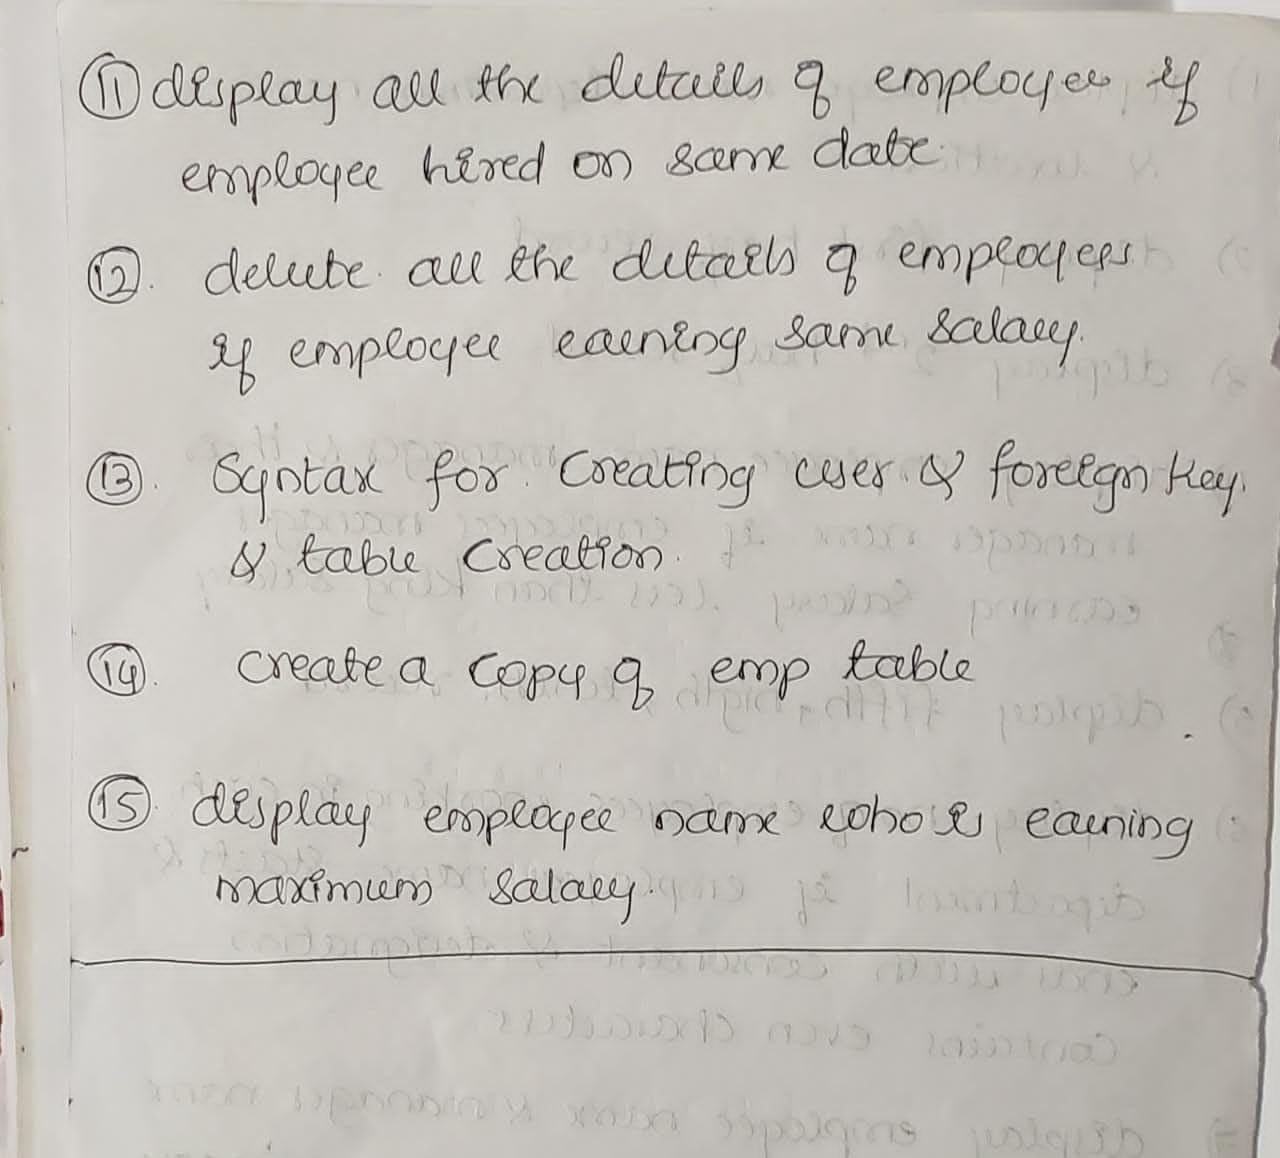 11 display all the details of employee, if
employee hired on same date.
12. delete all the details of employees
if employee earning same salary.
13. Syntax for creating user & foreign key.
& table creation.
14. create a copy of emp table
15. display employee name who is earning
maximum salary.